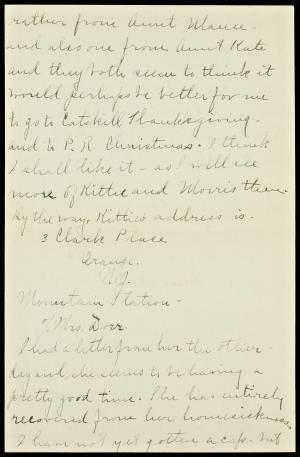 rather from Aunt Mame -
and also one from Aunt Kate
and they both seem to think it
would perhaps be better for me
to go to Catskill Thanksgiving -
and to P. R Christmas. I think
I shall like it - as I will see
more of Kittie and Morris then.
By the way, Kittie's address is.
3 Clark Place
Orange.
N.J.
Mountain Station -
c/o Mrs. Dorr.
I had a letter from her the other -
day and she seems to be having a
pretty good time. She has entirely
recovered from her homesickness.
I have not yet gotten a cap - but